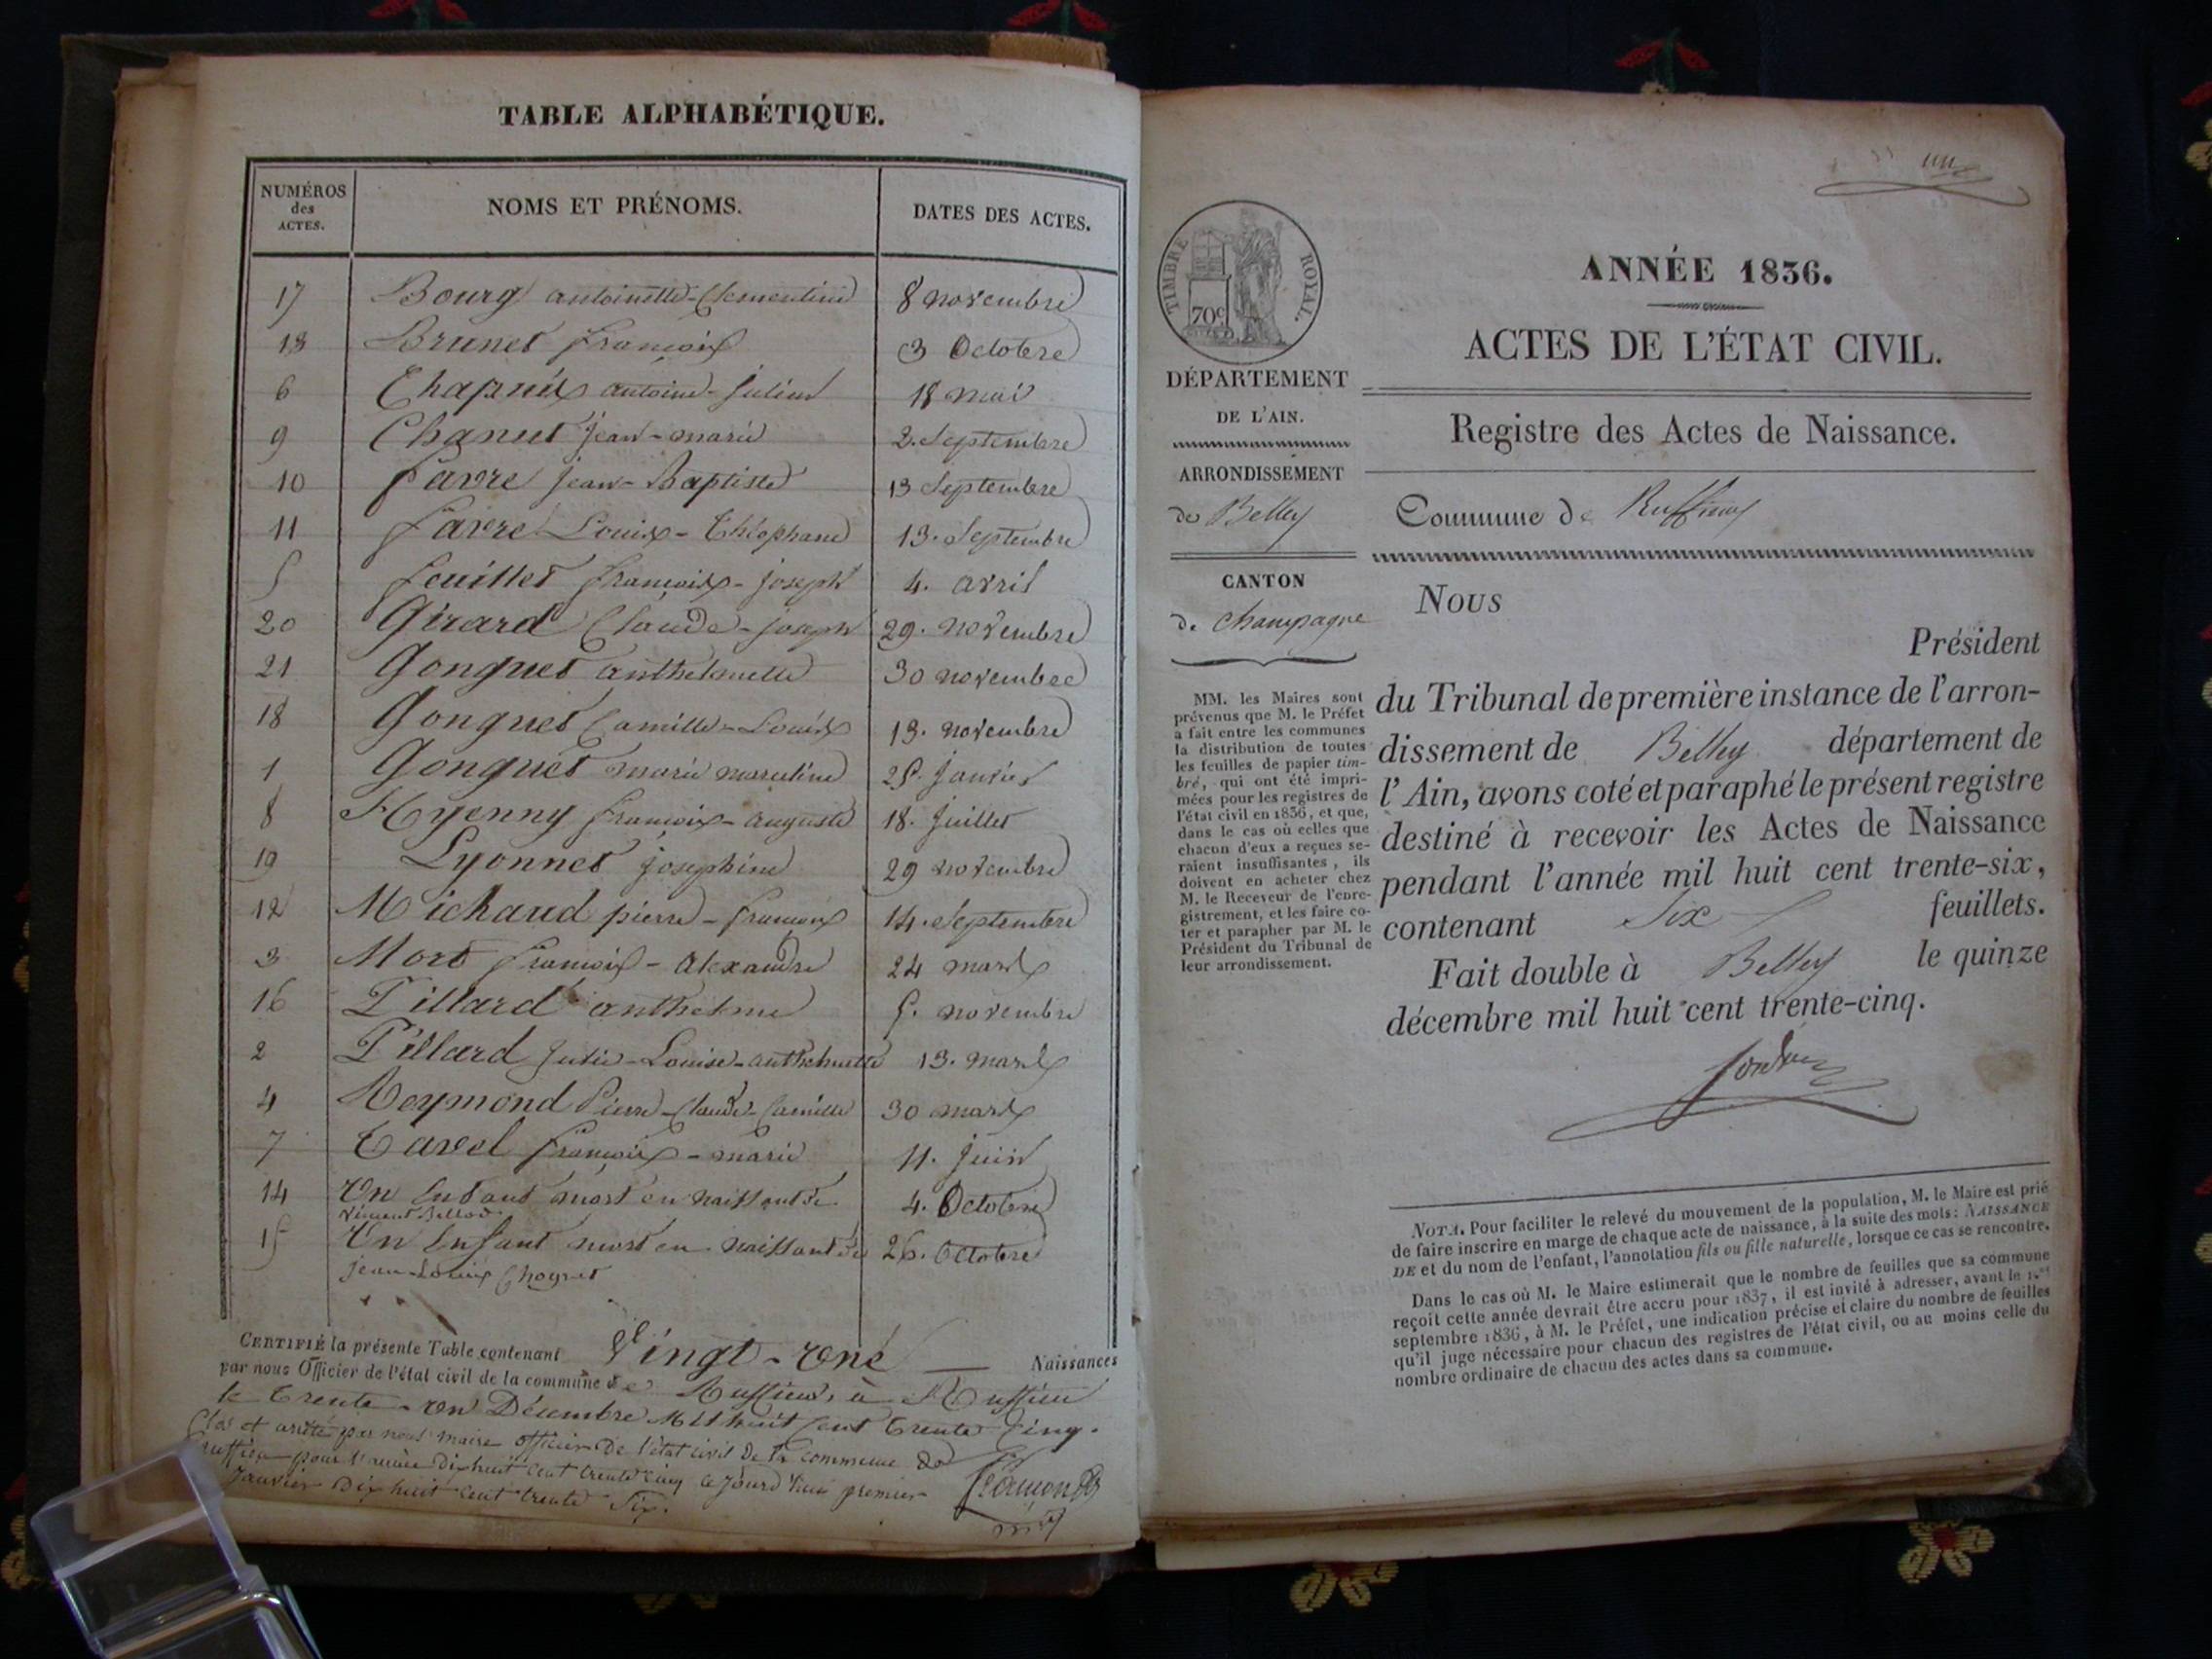 TABLE ALPHABÉTIQUE.
NUMÉROS des ACTES. NOMS ET PRÉNOMS. DATES DES ACTES.
17 Bourg antoinette-Clementine 8 novembre
13 Brunet françois 3 Octobre
6 Chapuis antoine-Julien 18 mai
9 Chanut jean-marie 2. Septembre
10 favre jean-Baptiste 13 Septembre
11 favre Louis-Théophane 13. Septembre
5 fouillet françois-joseph 4. avril
20 Girard Claude-joseph 29. novembre
21 Gonguet anthelmette 30 novembre
18 Gonguet Camille-Louis 13. novembre
1 Gonguet marie marceline 25. Janvier
8 Hyenny françois-auguste 18. Juillet
19 Lyonnet josephine 29 novembre
12 Michaud pierre-françois 14. Septembre
3 Mort françois-Alexandre 24 mars
16 Pillard anthelme 5. novembre
2 Pillard Julie-Louise-anthelmette 13. mars
4 Reymond Pierre-Claude-Camille 30 mars
7 Tavel françois-marie 11. Juin
14 Un Enfant mort en naissant de 4. Octobre
Vincent Bellod
15 Un Enfant mort en naissant de 26. Octobre
Jean-Louis
CERTIFIÉ la présente Table contenant Vingt-une Naissances
par nous Officier de l'état civil de la commune de Ruffieu, à Ruffieu
le trente-un Décembre Mil huit Cent trente Cinq.
Clos et arrêté par nous maire officier de l'état civil de la commune de
Ruffieu pour l'année dix huit cent trente cinq ce jourd'hui premier
Janvier dix huit cent trente Six.
un
TIMBRE ROYAL.
70c
ANNÉE 1836.
ACTES DE L'ÉTAT CIVIL.
DÉPARTEMENT
DE L'AIN.
Registre des Actes de Naissance.
ARRONDISSEMENT
de Belley
Commune de Ruffieux
CANTON
de Champagne
MM. les Maires sont
prévenus que M. le Préfet
a fait entre les communes
la distribution de toutes
les feuilles de papier tim-
bré, qui ont été impri-
mées pour les registres de
l'état civil en 1836, et que,
dans le cas où celles que
chacun d'eux a reçues se-
raient insuffisantes, ils
doivent en acheter chez
M. le Receveur de l'enre-
gistrement, et les faire co-
ter et parapher par M. le
Président du Tribunal de
leur arrondissement.
Nous
Président
du Tribunal de première instance de l'arron-
dissement de Belley département de
l'Ain, avons coté et paraphé le présent registre
destiné à recevoir les Actes de Naissance
pendant l'année mil huit cent trente-six,
contenant Six feuillets.
Fait double à Belley le quinze
décembre mil huit cent trente-cinq.
NOTA. Pour faciliter le relevé du mouvement de la population, M. le Maire est prié
de faire inscrire en marge de chaque acte de naissance, à la suite des mots: NAISSANCE
DE et du nom de l'enfant, l'annotation fils ou fille naturelle, lorsque ce cas se rencontre.
Dans le cas où M. le Maire estimerait que le nombre de feuilles que sa commune
reçoit cette année devrait être accru pour 1837, il est invité à adresser, avant le 1.er
septembre 1836, à M. le Préfet, une indication précise et claire du nombre de feuilles
qu'il juge nécessaire pour chacun des registres de l'état civil, ou au moins celle du
nombre ordinaire de chacun des actes dans sa commune.